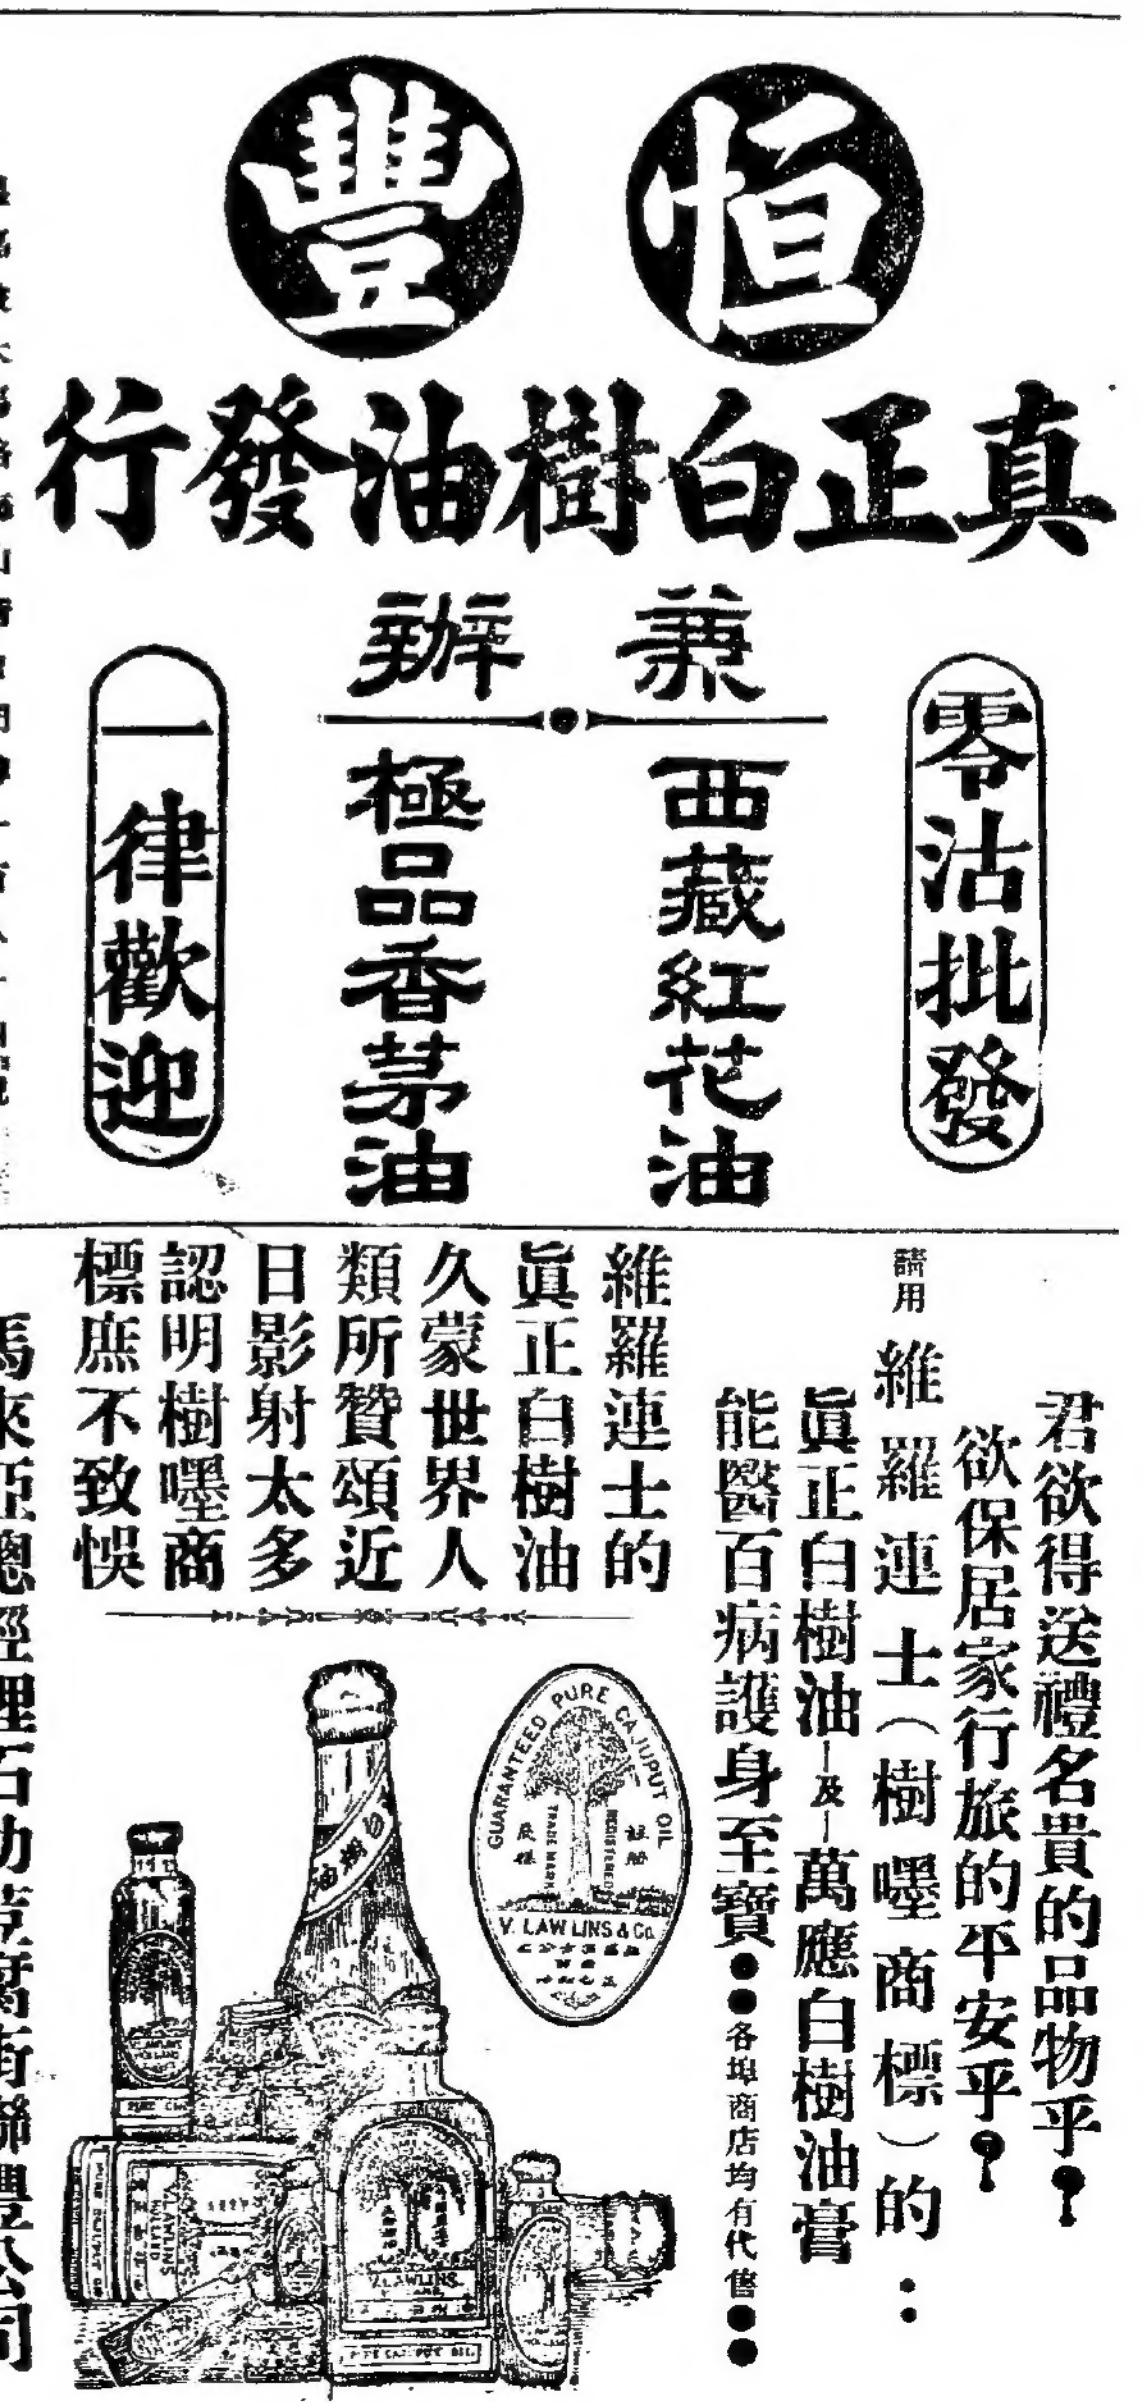 恒豐
真正白樹油發行
兼辦
零沽批發
西藏紅花油
極品香茅油
一律歡迎
君欲得送禮名貴的品物乎?
欲保居家行旅的平安乎?
請用 維羅連士(樹嘜商標)的:
眞正白樹油—及—萬應白樹油膏
能醫百病護身至寶●●各埠商店均有代售●●
維羅連士的
眞正白樹油
久蒙世界人
類所贊頌近
日影射太多
認明樹嘜商
標庶不致悞
GUARANTEED PURE CAJUPUT OIL
TRADE MARK
REGISTERED
V. LAWLINS & Co.
白樹油
V.LAWLINS
HOLLAND
V.LAWLINS
PURE CAJUPUT OIL